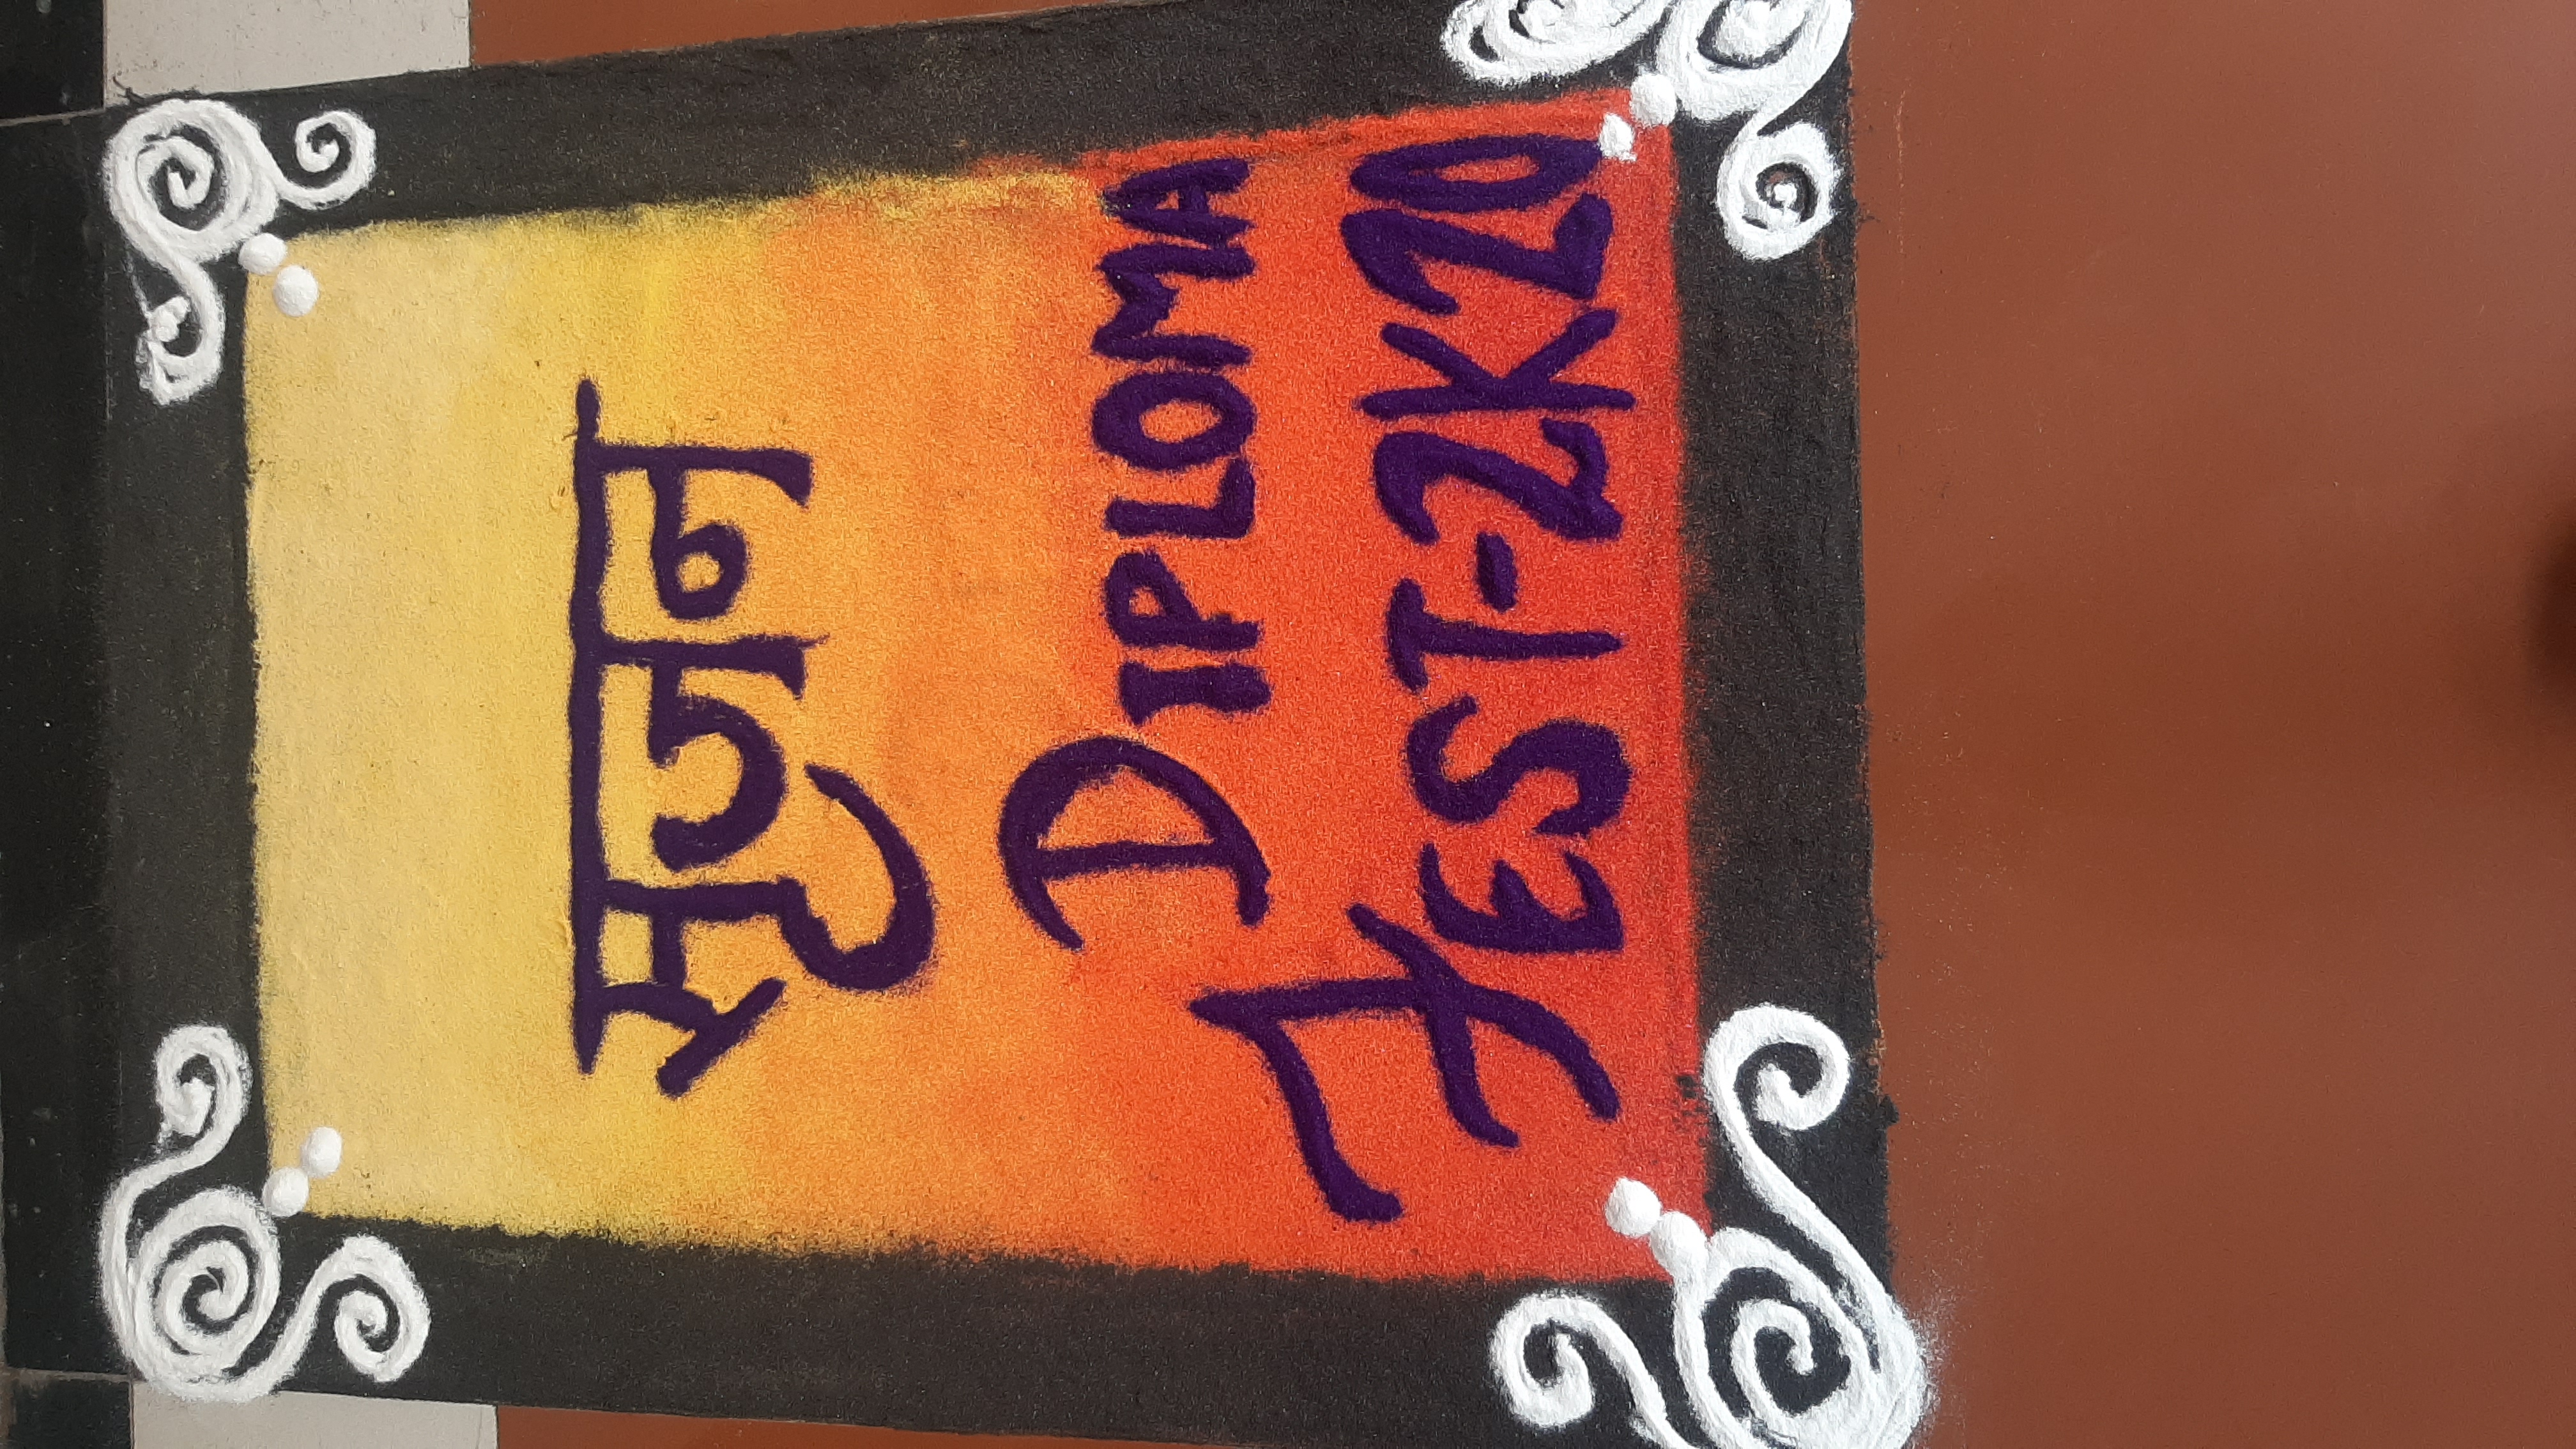 सृजन
DIPLOMA
FEST-2K20